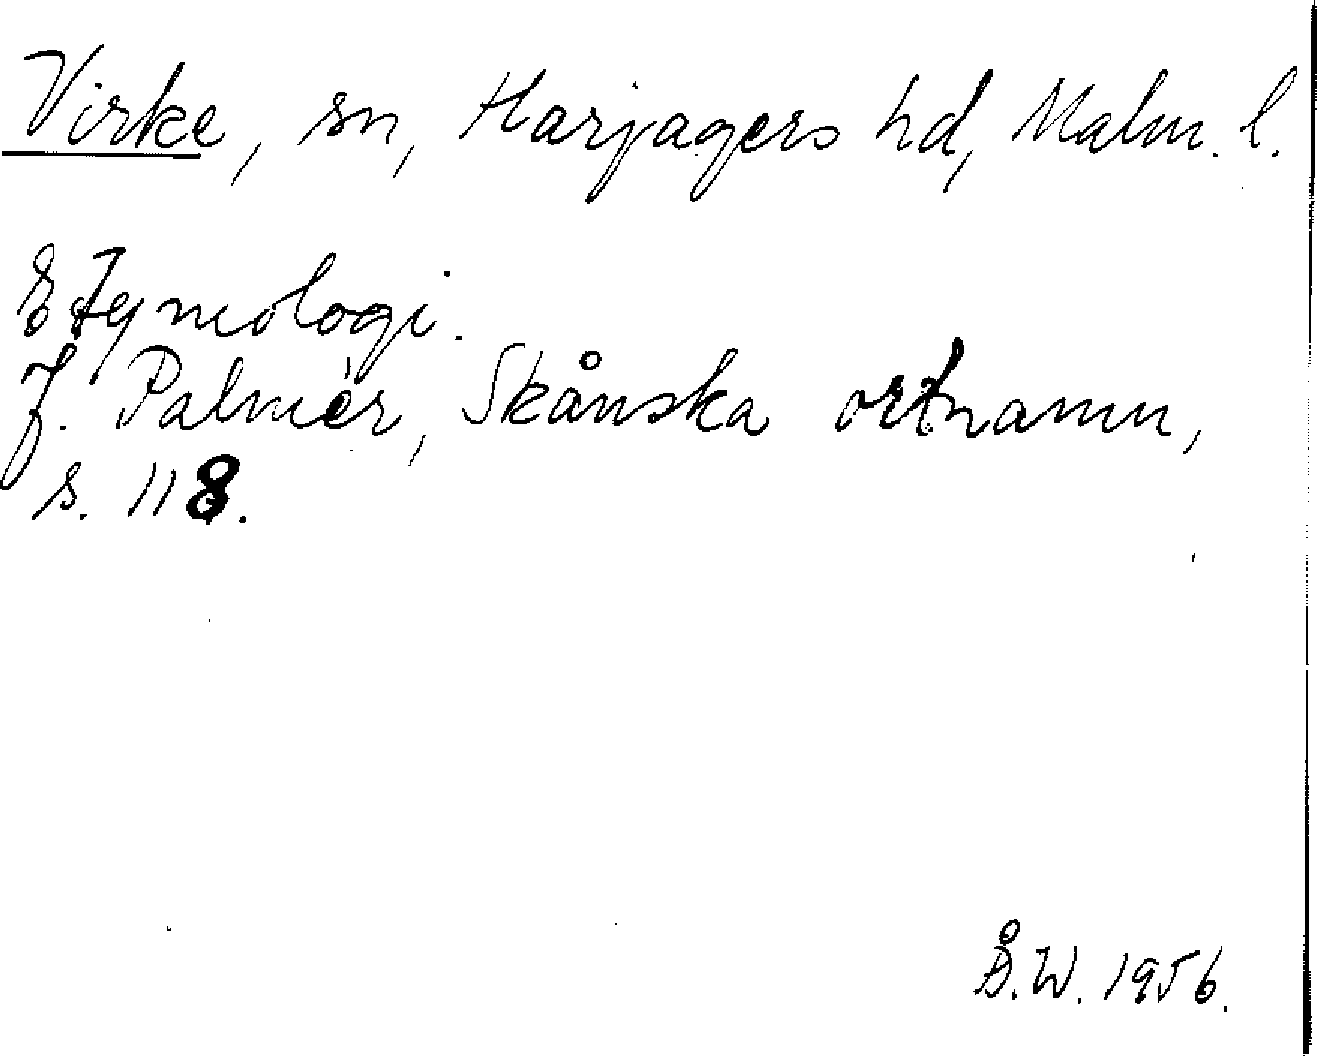 Virke, sn, Harjagers hd, Malm. l.
Etymologi.
J. Palmér, Skånska ortnamn,
s. 118.
Å.W. 1956.